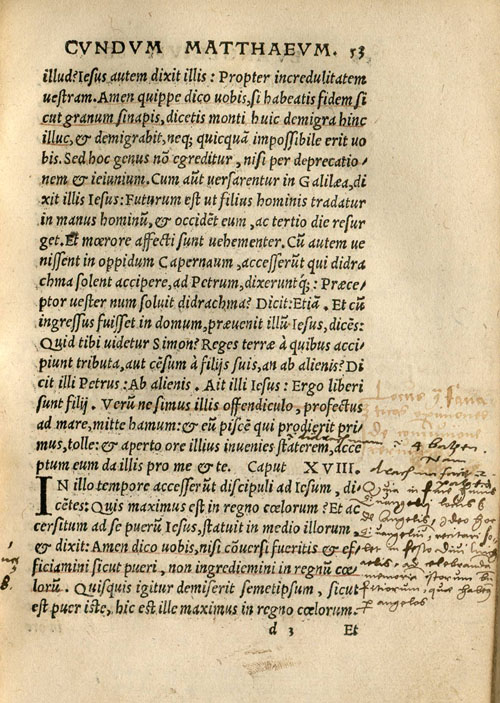 CVNDVM MATTHAEVM. 53
illud? Iesus autem dixit illis : Propter incredulitatem
uestram. Amen quippe dico uobis, si habeatis fidem si
cut granum sinapis, dicetis monti huic demigra hinc
illuc, & demigrabit, neq; quicquã impossibile erit uo
bis. Sed hoc genus nõ egreditur, nisi per deprecatio-
nem & ieiunium. Cum aũt uersarentur in Galilæa, di
xit illis Iesus: Futurum est ut filius hominis tradatur
in manus hominũ, & occidẽt eum, ac tertio die resur
get. Et mœrore affecti sunt uehementer. Cũ autem ue
nissent in oppidum Capernaum, accesserũt qui didra
chma solent accipere, ad Petrum, dixeruntq́; : Præce-
ptor uester num soluit didrachma? Dicit: Etiã. Et cũ
ingressus fuisset in domum, præuenit illũ Iesus, dicẽs:
Quid tibi uidetur Simon? Reges terræ à quibus acci-
piunt tributa, aut cẽsum à filijs suis, an ab alienis? Di
cit illi Petrus : Ab alienis . Ait illi Iesus : Ergo liberi
sunt filij . Verũ ne simus illis offendiculo, profectus
ad mare, mitte hamum: & eũ piscẽ qui prodierit pri-
mus, tolle: & aperto ore illius inuenies staterem, acce
ptum eum da illis pro me & te. Caput XVIII.
IN illo tempore accesserũt discipuli ad Iesum, di-
cẽtes: Quis maximus est in regno cœlorum? Et ac
cersitum ad se puerũ Iesus, statuit in medio illorum,
& dixit: Amen dico uobis, nisi cõuersi fueritis & ef-
ficiamini sicut pueri, non ingrediemini in regnũ cœ-
lorũ . Quisquis igitur demiserit semetipsum, sicut
est puer iste, hic est ille maximus in regno cœlorum.
d 3 Et